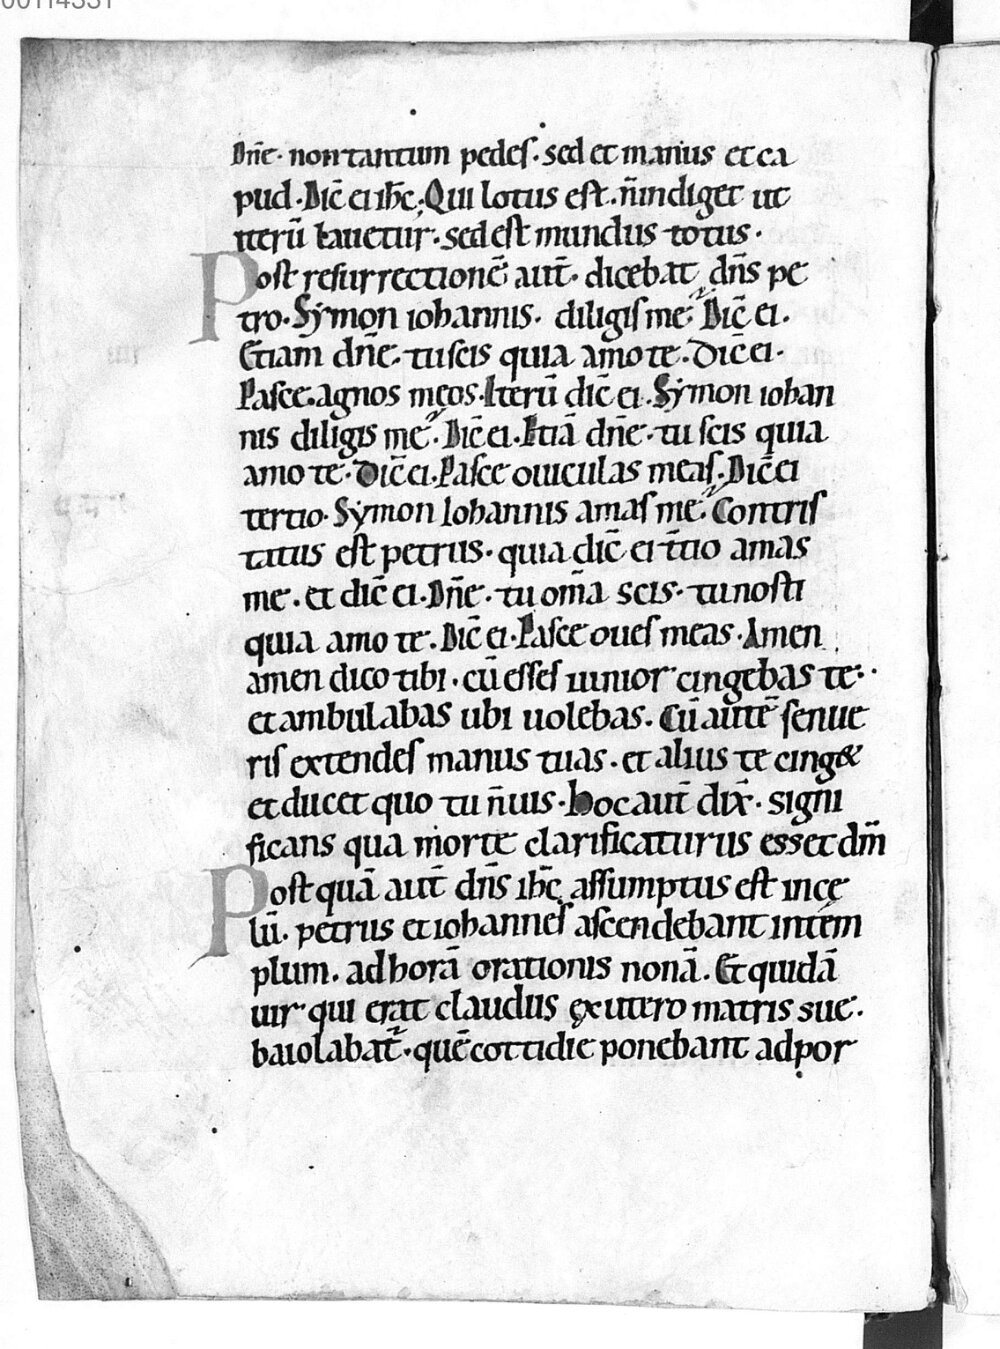 00114331
Dn̄e· non tantum pedeſ· sed et manus et ca
pud· Dic̄ ei ih̄c; Qui lotus eſt· n̄ indiget ut
iterū lauetur· sed eſt mundus totus·
Poſt reſurrectionē aut̄· dicebat dn̄s pe
tro· Sẏmon iohannis· diligiſ me; Dic̄ ei·
Etiam̄ dn̄e· tu ſcis quia amo te· Dic̄ ei·
Paſce agnos meos· Iterū dic̄ ei· Sẏmon iohan
nis diligis me· Dic̄ ei· Etiā dn̄e· tu ſcis quia
amo te· Dic̄ ei· Paſce ouiculas meaſ· Dic̄ ei
tertio· Sẏmon Iohannis amaſ me· Contriſ
tatus eſt petrus· quia dic̄ ei t̄tio amas
me· et dic̄ ei· Dn̄e· tu om̄a scis· tu noſti
quia amo te· Dic̄ ei· Paſce oueſ meas· Amen
amen dico tibi· cū eſſeſ iunior cingebas te·
et ambulabas ubi uolebas· Cū autē ſenue
riſ extendeſ manus tuas· et alius te cing&
et ducet quo tu n̄ uis· Hoc aut̄ dix̄· signi
ficans qua morte clarificaturus esset dm̄
Poſt quā aut̄ dn̄s ih̄c aſſumptus eſt in ce
lū· petrus et iohanneſ aſcendebant in tem
plum· ad horā orationis nonā· Et quidā
uir qui erat claudus ex utero matris sue·
baiolabat̄· quē cottidie ponebant ad por